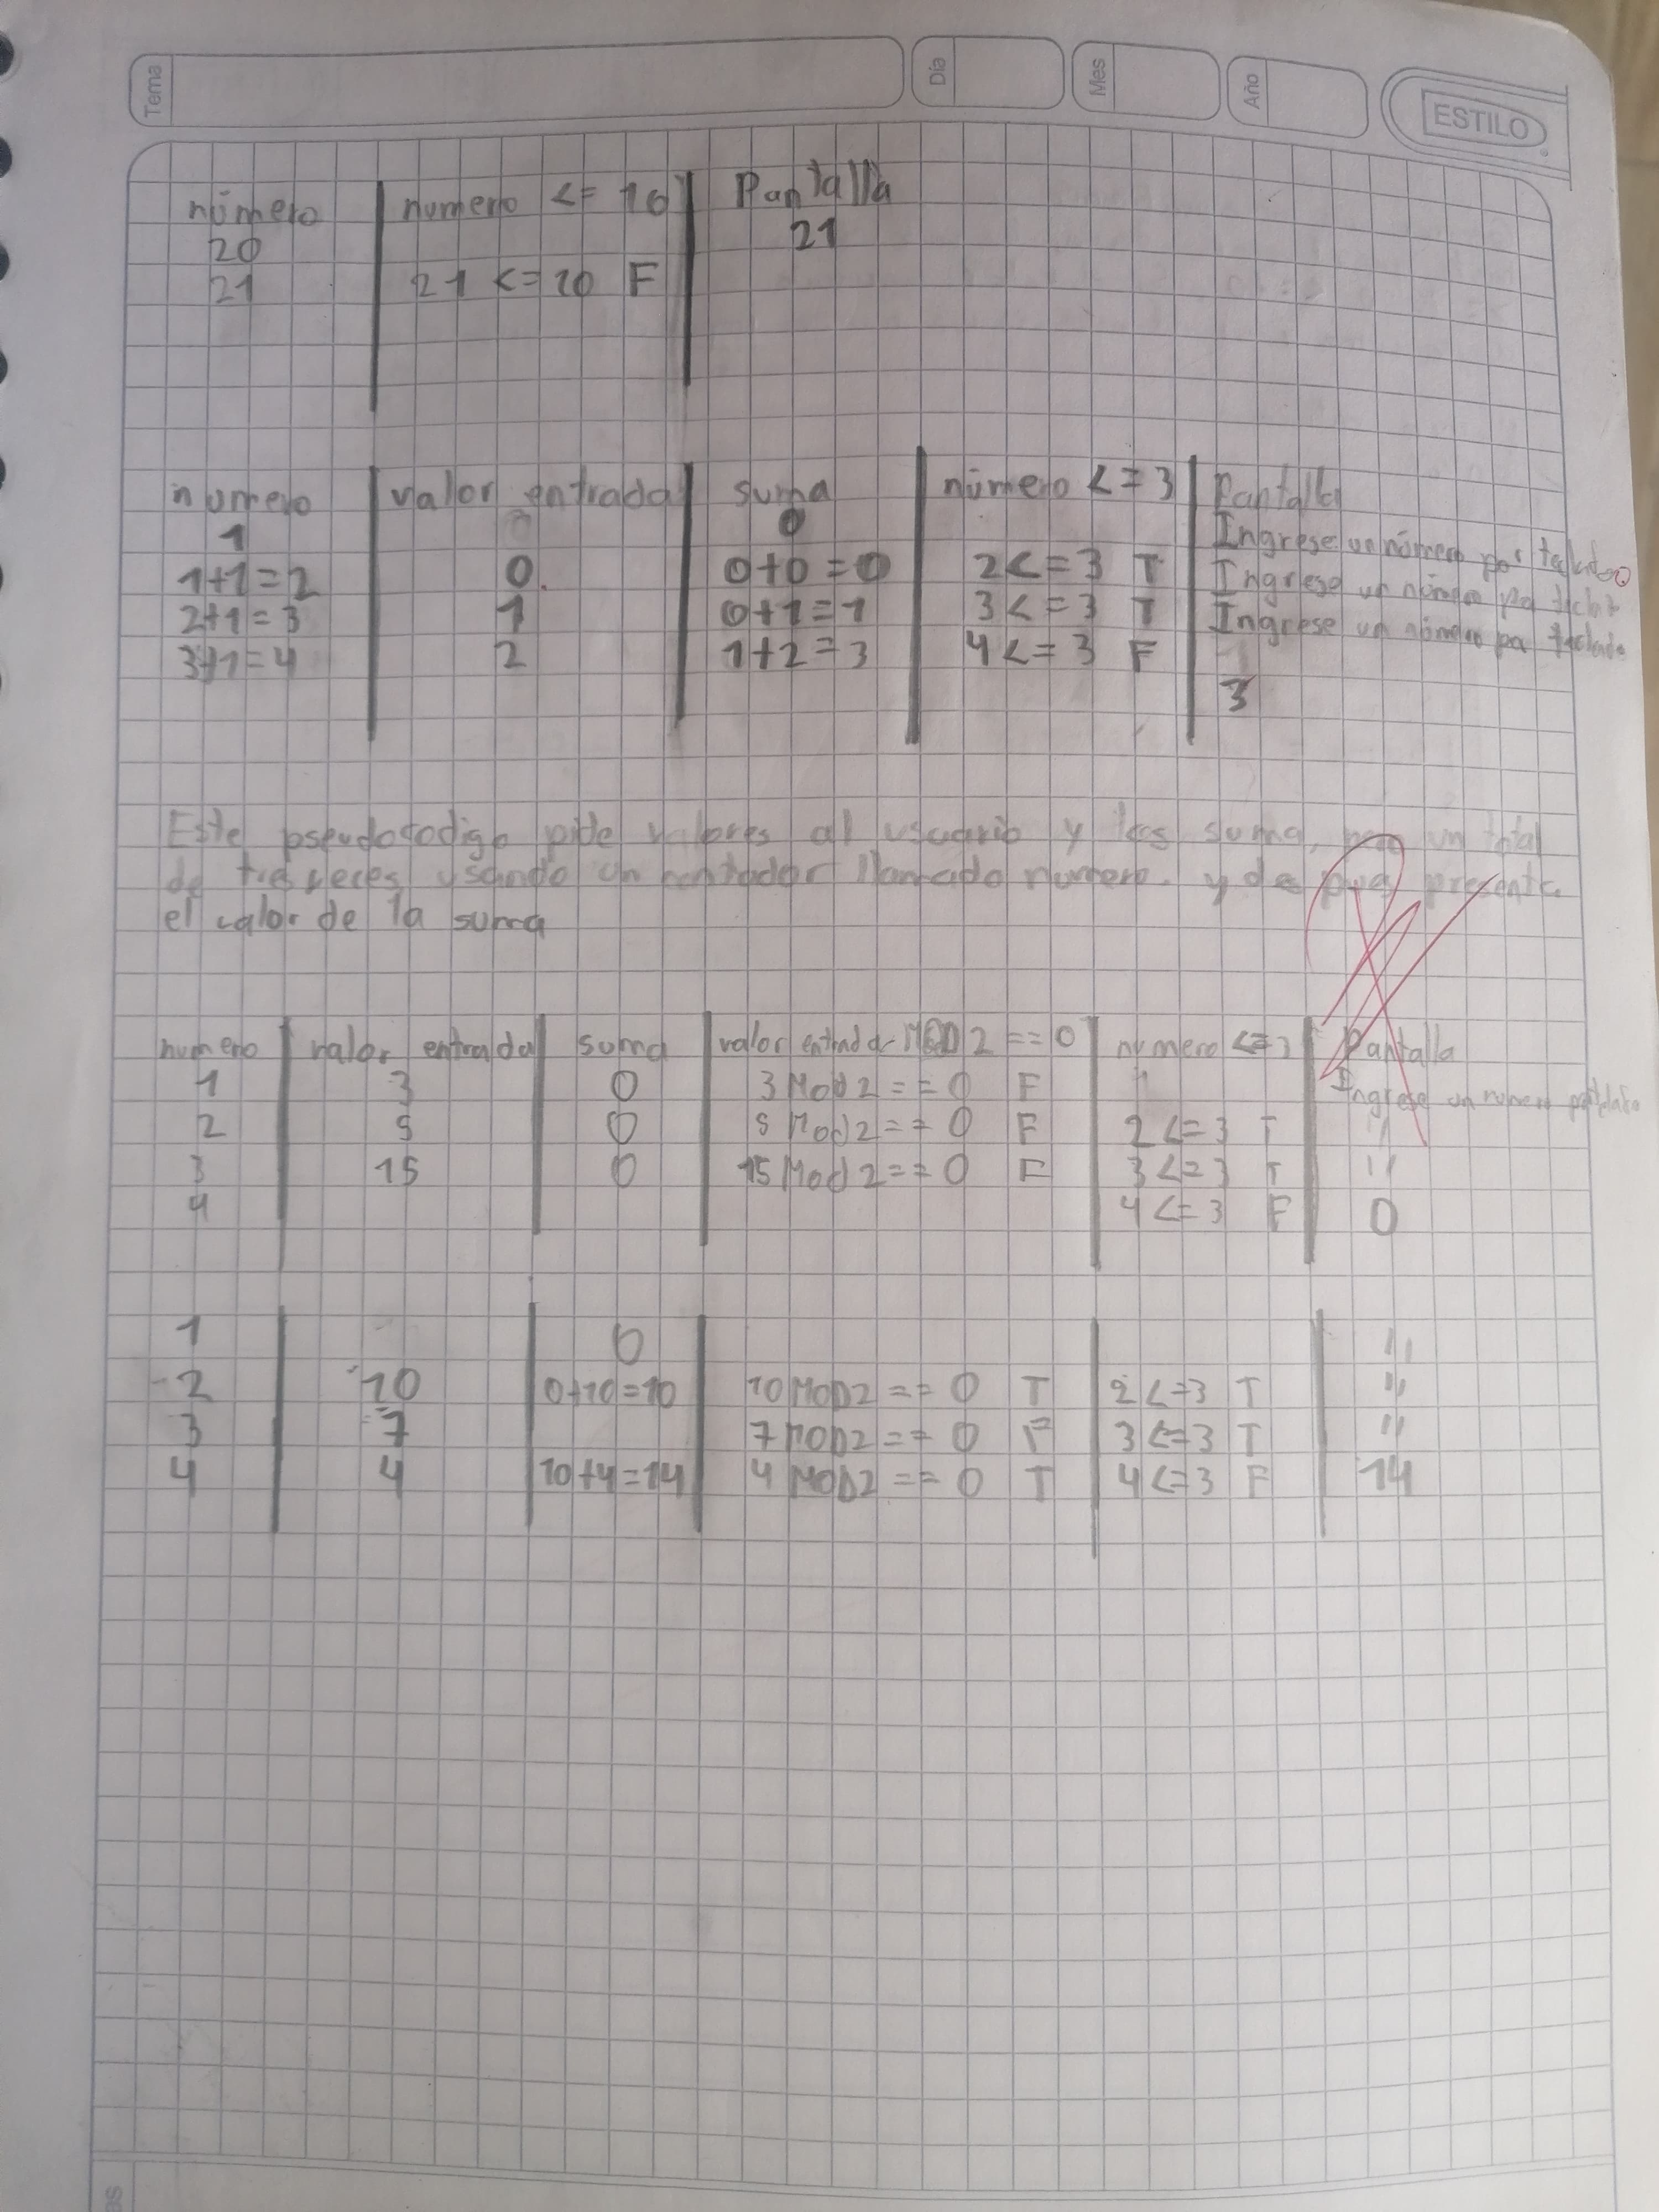 Tema Día Mes Año ESTILO
número numero <= 10 Pantalla
20 21
21 21 <= 10 F
numero valor entrada suma número <= 3 Pantalla
1 0 Ingrese un número por teclado
1+1=2 0 0+0=0 2<=3 T Ingrese un número por
2+1=3 1 0+1=1 3<=3 T Ingrese un número por teclado
3+1=4 2 1+2=3 4<=3 F
3
Este pseudocodigo pide valores al usuario y los suma, por un total
de tres veces usando un contador llamado numero. y despues presenta
el valor de la suma
numero valor entrada suma valor entrada MOD 2 == 0 numero <=3 Pantalla
1 3 0 3 Mod 2 == 0 F Ingrese un numero
2 5 0 5 Mod 2 == 0 F 2 <= 3 T "
3 15 0 15 Mod 2 == 0 F 3 <= 3 T "
4 4 <= 3 F 0
1 0 "
2 10 0+10=10 10 MOD2 == 0 T 2 <=3 T "
3 7 7 MOD2 == 0 F 3 <=3 T "
4 4 10+4=14 4 MOD2 == 0 T 4 <=3 F 14